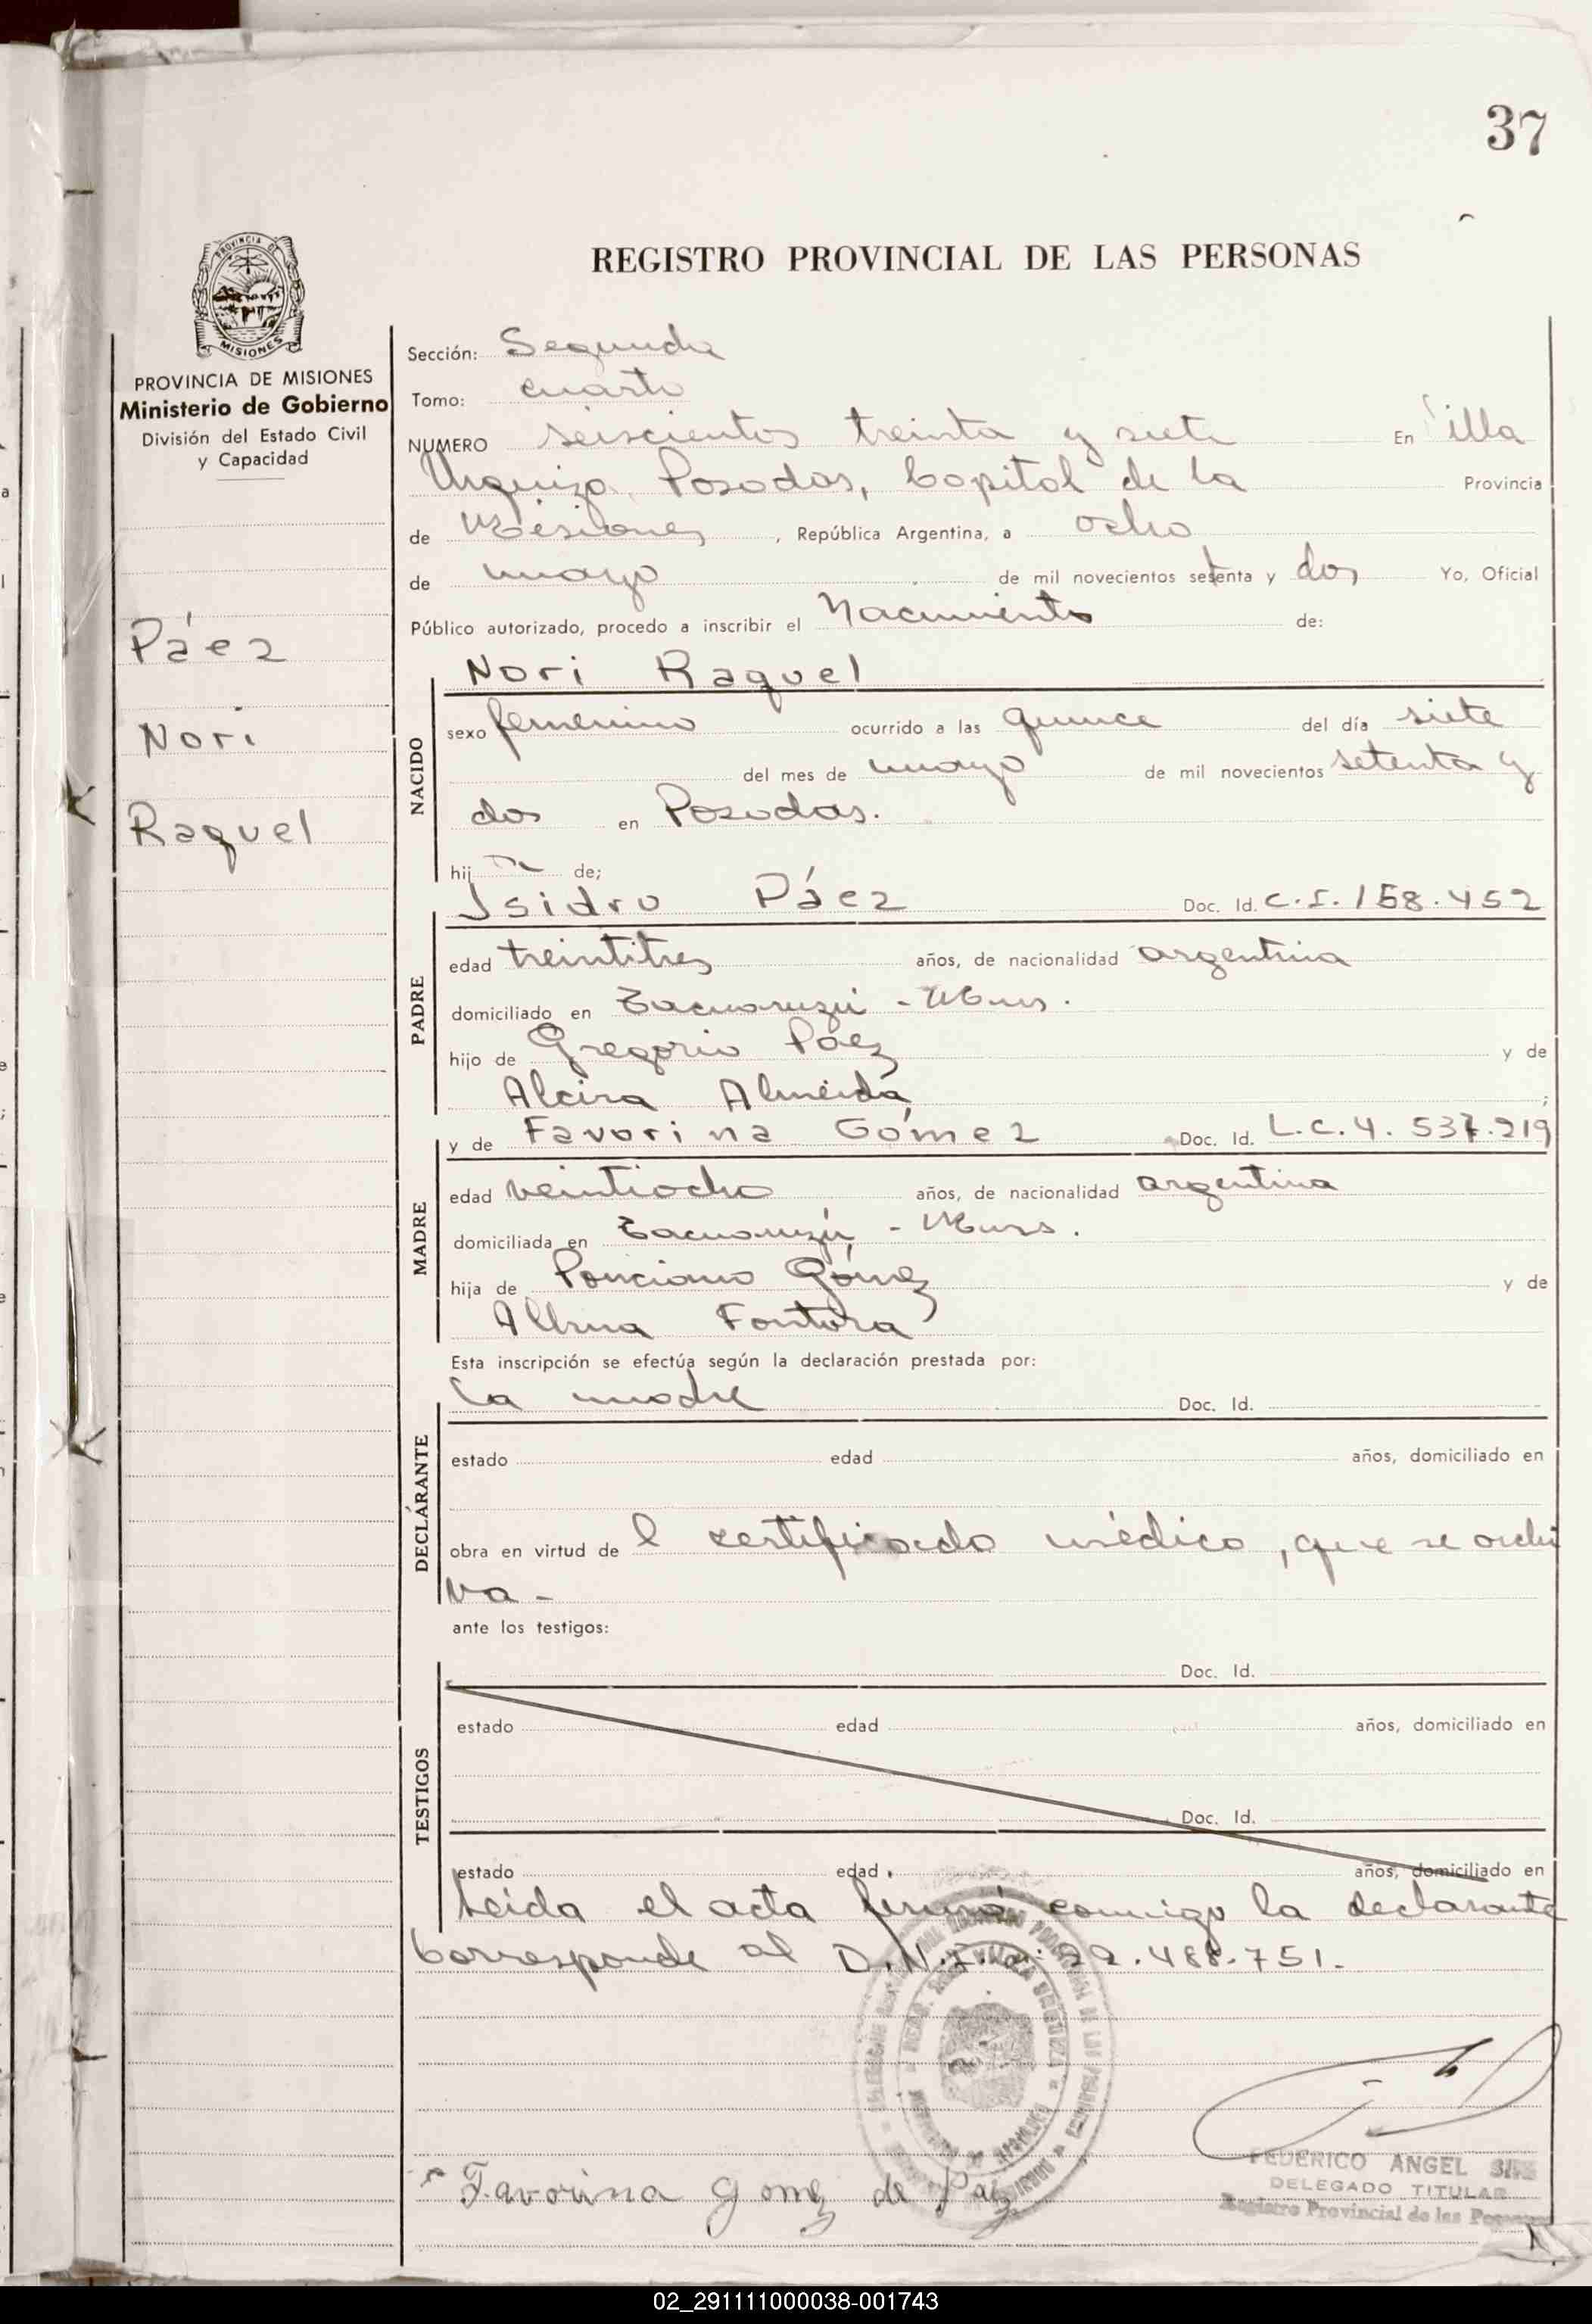 37
REGISTRO PROVINCIAL DE LAS PERSONAS
PROVINCIA DE MISIONES
PROVINCIA DE MISIONES
Ministerio de Gobierno
División del Estado Civil
y Capacidad
Páez
Nori
Raquel
Sección: Segunda
Tomo: cuarto
NUMERO seiscientos treinta y siete En Villa
Urquiza, Posadas, Capital de la Provincia
de Misiones, República Argentina, a ocho
de mayo de mil novecientos setenta y dos Yo, Oficial
Público autorizado, procedo a inscribir el Nacimiento de:
Nori Raquel
NACIDO
sexo femenino ocurrido a las quince del día siete
del mes de mayo de mil novecientos setenta y
dos en Posadas.
hija de;
Isidro Páez Doc. Id. C.I. 158.452
PADRE
edad treintitres años, de nacionalidad argentina
domiciliado en Tacuaruzú - Mnes.
hijo de Gregorio Páez y de
Alcira Almeida;
y de Favorina Gómez Doc. Id. L.C. 4.537.219
MADRE
edad veintiocho años, de nacionalidad argentina
domiciliada en Tacuaruzú - Mnes.
hija de Ponciano Gómez y de
Albina Fontora
Esta inscripción se efectúa según la declaración prestada por:
la madre Doc. Id.
DECLARANTE
estado edad años, domiciliado en
obra en virtud de l certificado médico, que se archi
va -
ante los testigos:
Doc. Id.
TESTIGOS
estado edad años, domiciliado en
Doc. Id.
estado edad años, domiciliado en
Leida el acta firmó conmigo la declarante
Corresponde al D.N.I. n: 22.488.751.-
Favorina Gomez de Paez
FEDERICO ANGEL
DELEGADO TITULAR
Registro Provincial de las Personas
02_291111000038-001743